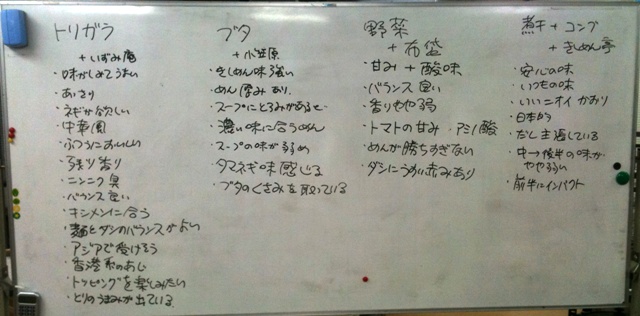 トリガラ
+いずみ庵
・味がしみてうまい
・あっさり
・ネギが欲しい
・中華風
・ふつうにおいしい
・香り
・ニンニク臭
・バランス良い
・キンメンに合う
・麺とダシのバランスがよい
・アジアで受けそう
・香港系のあじ
・トッピングを楽しみたい
・とりのうまみが出ている
ブタ
+小笠原
・きしめん味強い
・めん厚みあり
・スープにとろみがあると
・濃い味に合うめん
・スープの味が弱め
・タマネギ味感じる
・ブタのくさみを取っている
野菜
+布袋
・甘み+酸味
・バランス良い
・香りやや弱
・トマトの甘み・アミノ酸
・めんが勝ちすぎない
・ダシにうかい赤みあり
煮干+コンブ
+きしめん亭
・安心の味
・いつもの味
・いいニオイ かおり
・日本的
・だし主過している
・中→後半の味が
やや弱い
・前半にインパクト